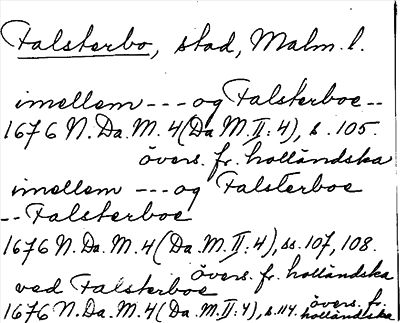 Falsterbo, stad, Malm. l.
imellem --- og Falsterboe --
1676 N. Da. M. 4 (Da M. II: 4), s. 105.
övers. fr. holländska
imellem --- og Falsterboe
-- Falsterboe
1676 N. Da. M. 4 (Da. M. II: 4), ss. 107, 108.
övers. fr. holländska
ved Falsterboe
1676 N. Da. M. 4 (Da. M. II: 4), s. 114. övers. fr. holländska